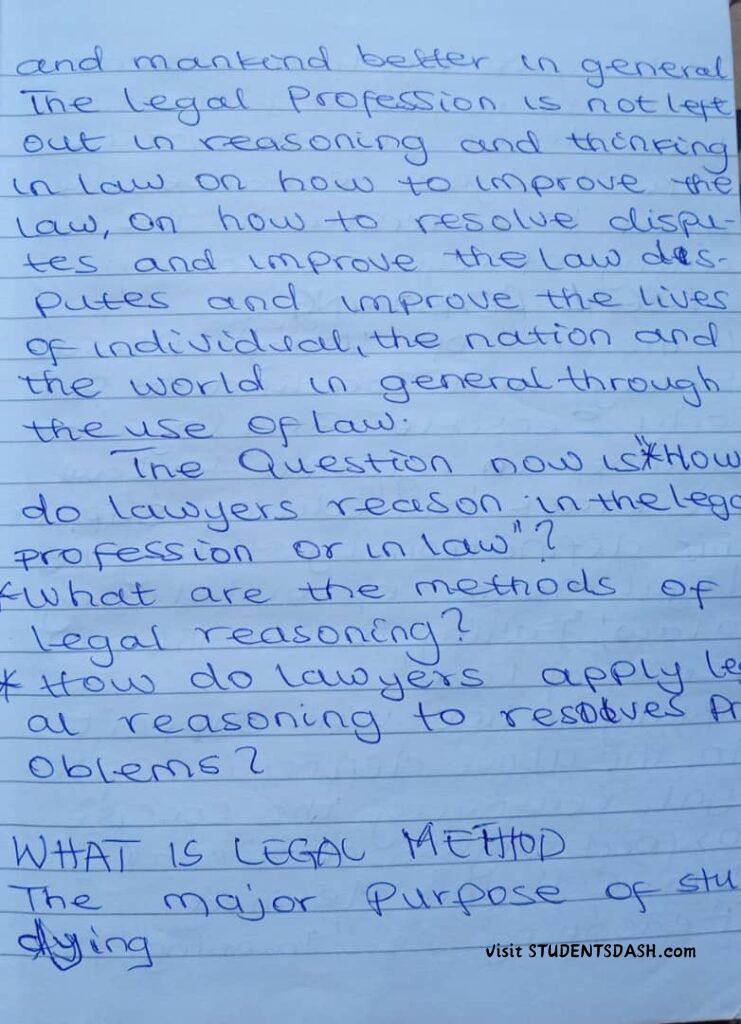 and mankind better in general
The legal Profession is not left
out in reasoning and thinking
in law on how to improve the
law, on how to resolve dispu-
tes and improve the law dis-
putes and improve the lives
of individual, the nation and
the world in general through
the use of law.
The Question now is "*How
do lawyers reason in the lega
profession or in law"?
*What are the methods of
legal reasoning?
* How do lawyers apply leg
al reasoning to resolves Pr
oblems?
WHAT IS LEGAL METHOD
The major Purpose of stu
dying
Visit STUDENTSDASH.com